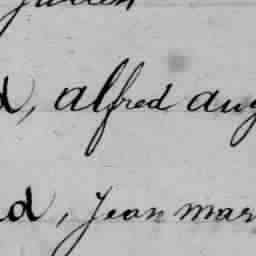 d, alfred aug
d, Jean mar